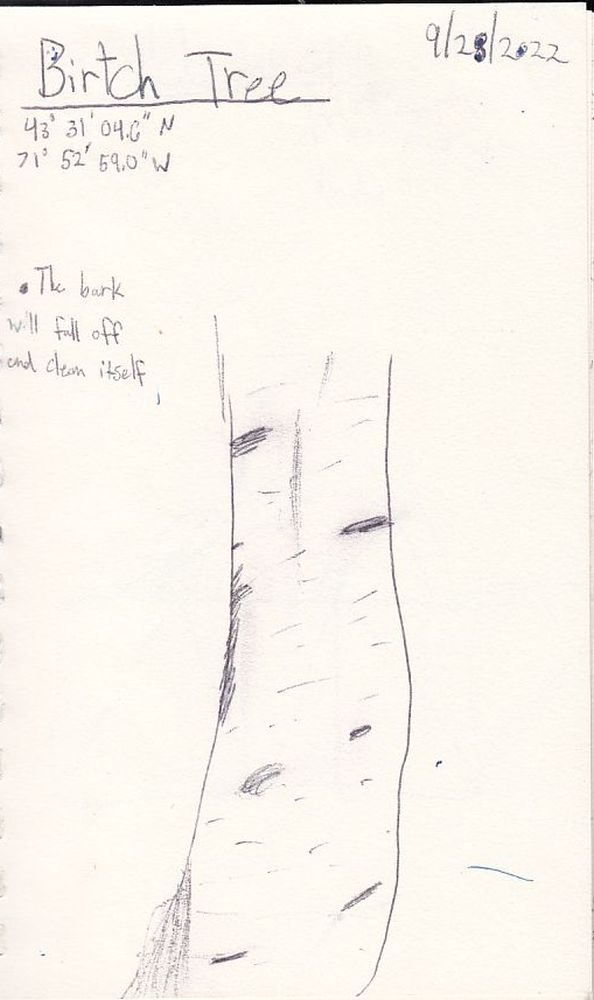 9/28/2022
Birtch Tree
43° 31' 04.6" N
71° 52' 59.0" W
• The bark
will fall off
and clean itself